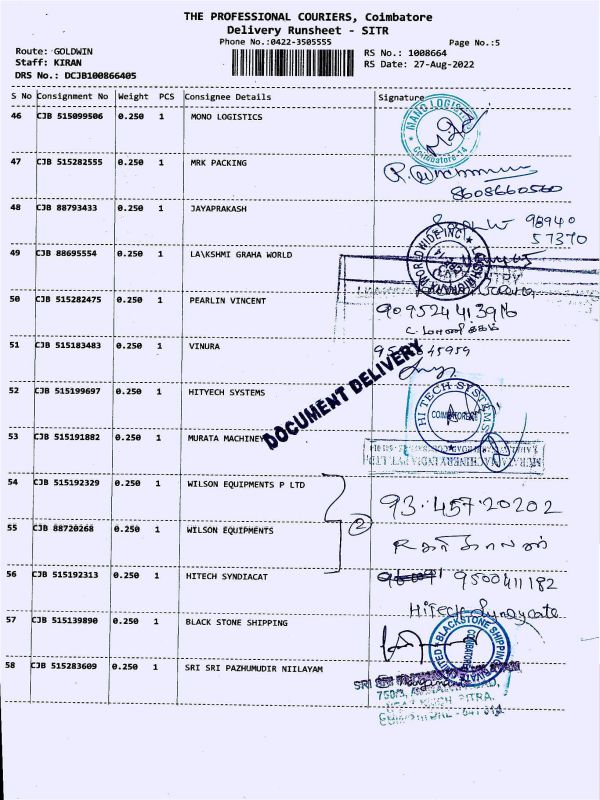 THE PROFESSIONAL COURIERS, Coimbatore
Delivery Runsheet - SITR
Phone No.:0422-3505555
Page No.:5
Route: GOLDWIN
RS No.: 1008664
Staff: KIRAN
RS Date: 27-Aug-2022
DRS No.: DCJB100866405
S No Consignment No Weight PCS Consignee Details Signature
46 CJB 515099506 0.250 1 MONO LOGISTICS
MANO LOGISTICS
Coimbatore-14
47 CJB 515282555 0.250 1 MRK PACKING
8608660560
48 CJB 88793433 0.250 1 JAYAPRAKASH
98940
57370
49 CJB 88695554 0.250 1 LA\KSHMI GRAHA WORLD
WORLDWIDE INC
50 CJB 515282475 0.250 1 PEARLIN VINCENT
9095244139
51 CJB 515183483 0.250 1 VINURA
45959
DOCUMENT DELIVERY
52 CJB 515199697 0.250 1 HITYECH SYSTEMS
HI TECH SYSTEMS
53 CJB 515191882 0.250 1 MURATA MACHINEY
MURATA MACHINERY INDIA PVT. LTD
54 CJB 515192329 0.250 1 WILSON EQUIPMENTS P LTD
93.457.20202
2
55 CJB 88720268 0.250 1 WILSON EQUIPMENTS
56 CJB 515192313 0.250 1 HITECH SYNDIACAT
9500411182
HiTech Synaycate
57 CJB 515139890 0.250 1 BLACK STONE SHIPPING
BLACKSTONE SHIPPING PRIVATE LIMITED
COIMBATORE
58 CJB 515283609 0.250 1 SRI SRI PAZHUMUDIR NIILAYAM
SRI
750/3,